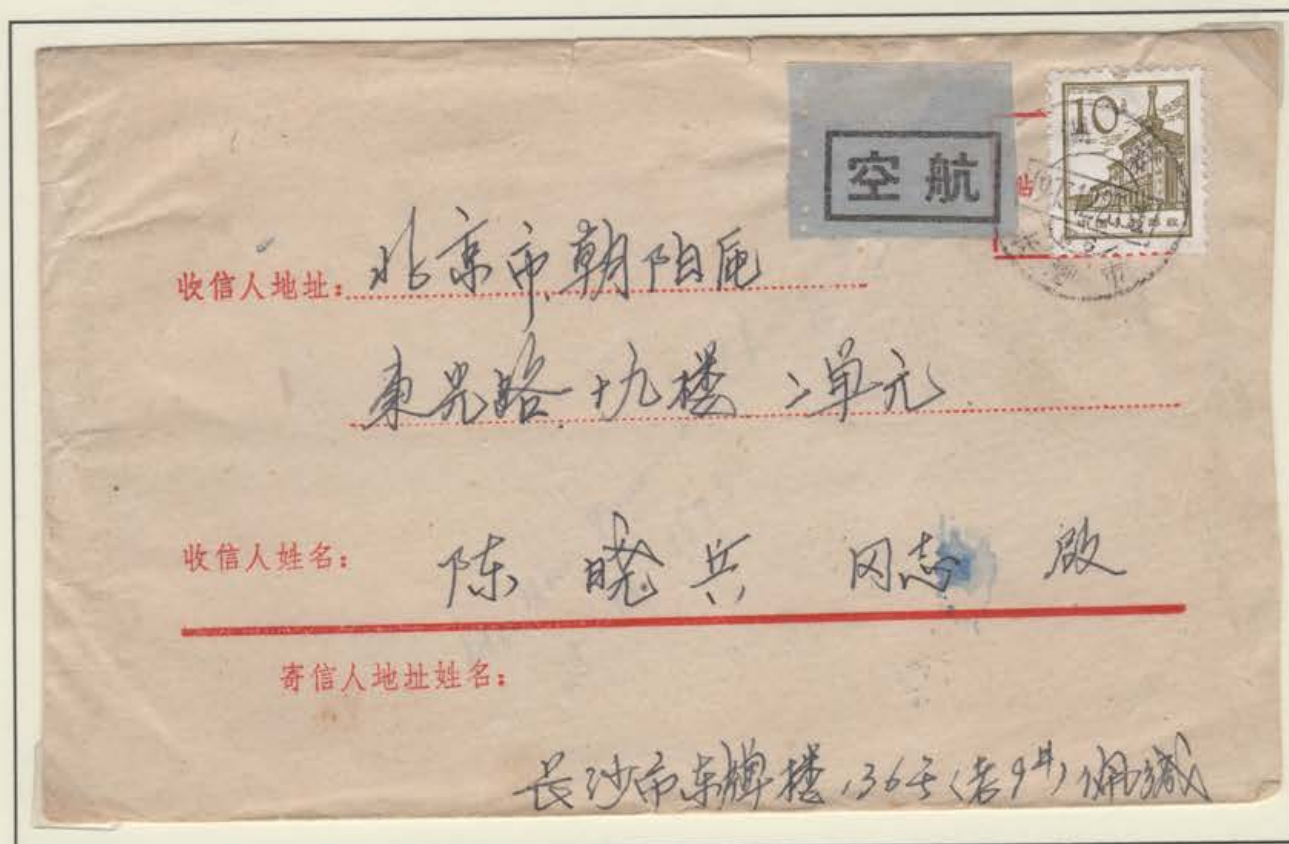 10
空航
贴
收信人地址：北京市朝阳区
东光路 十九楼 二单元
收信人姓名： 陈 晓 兵 同志 啟
寄信人地址姓名：
长沙市东牌楼136号(老9#)